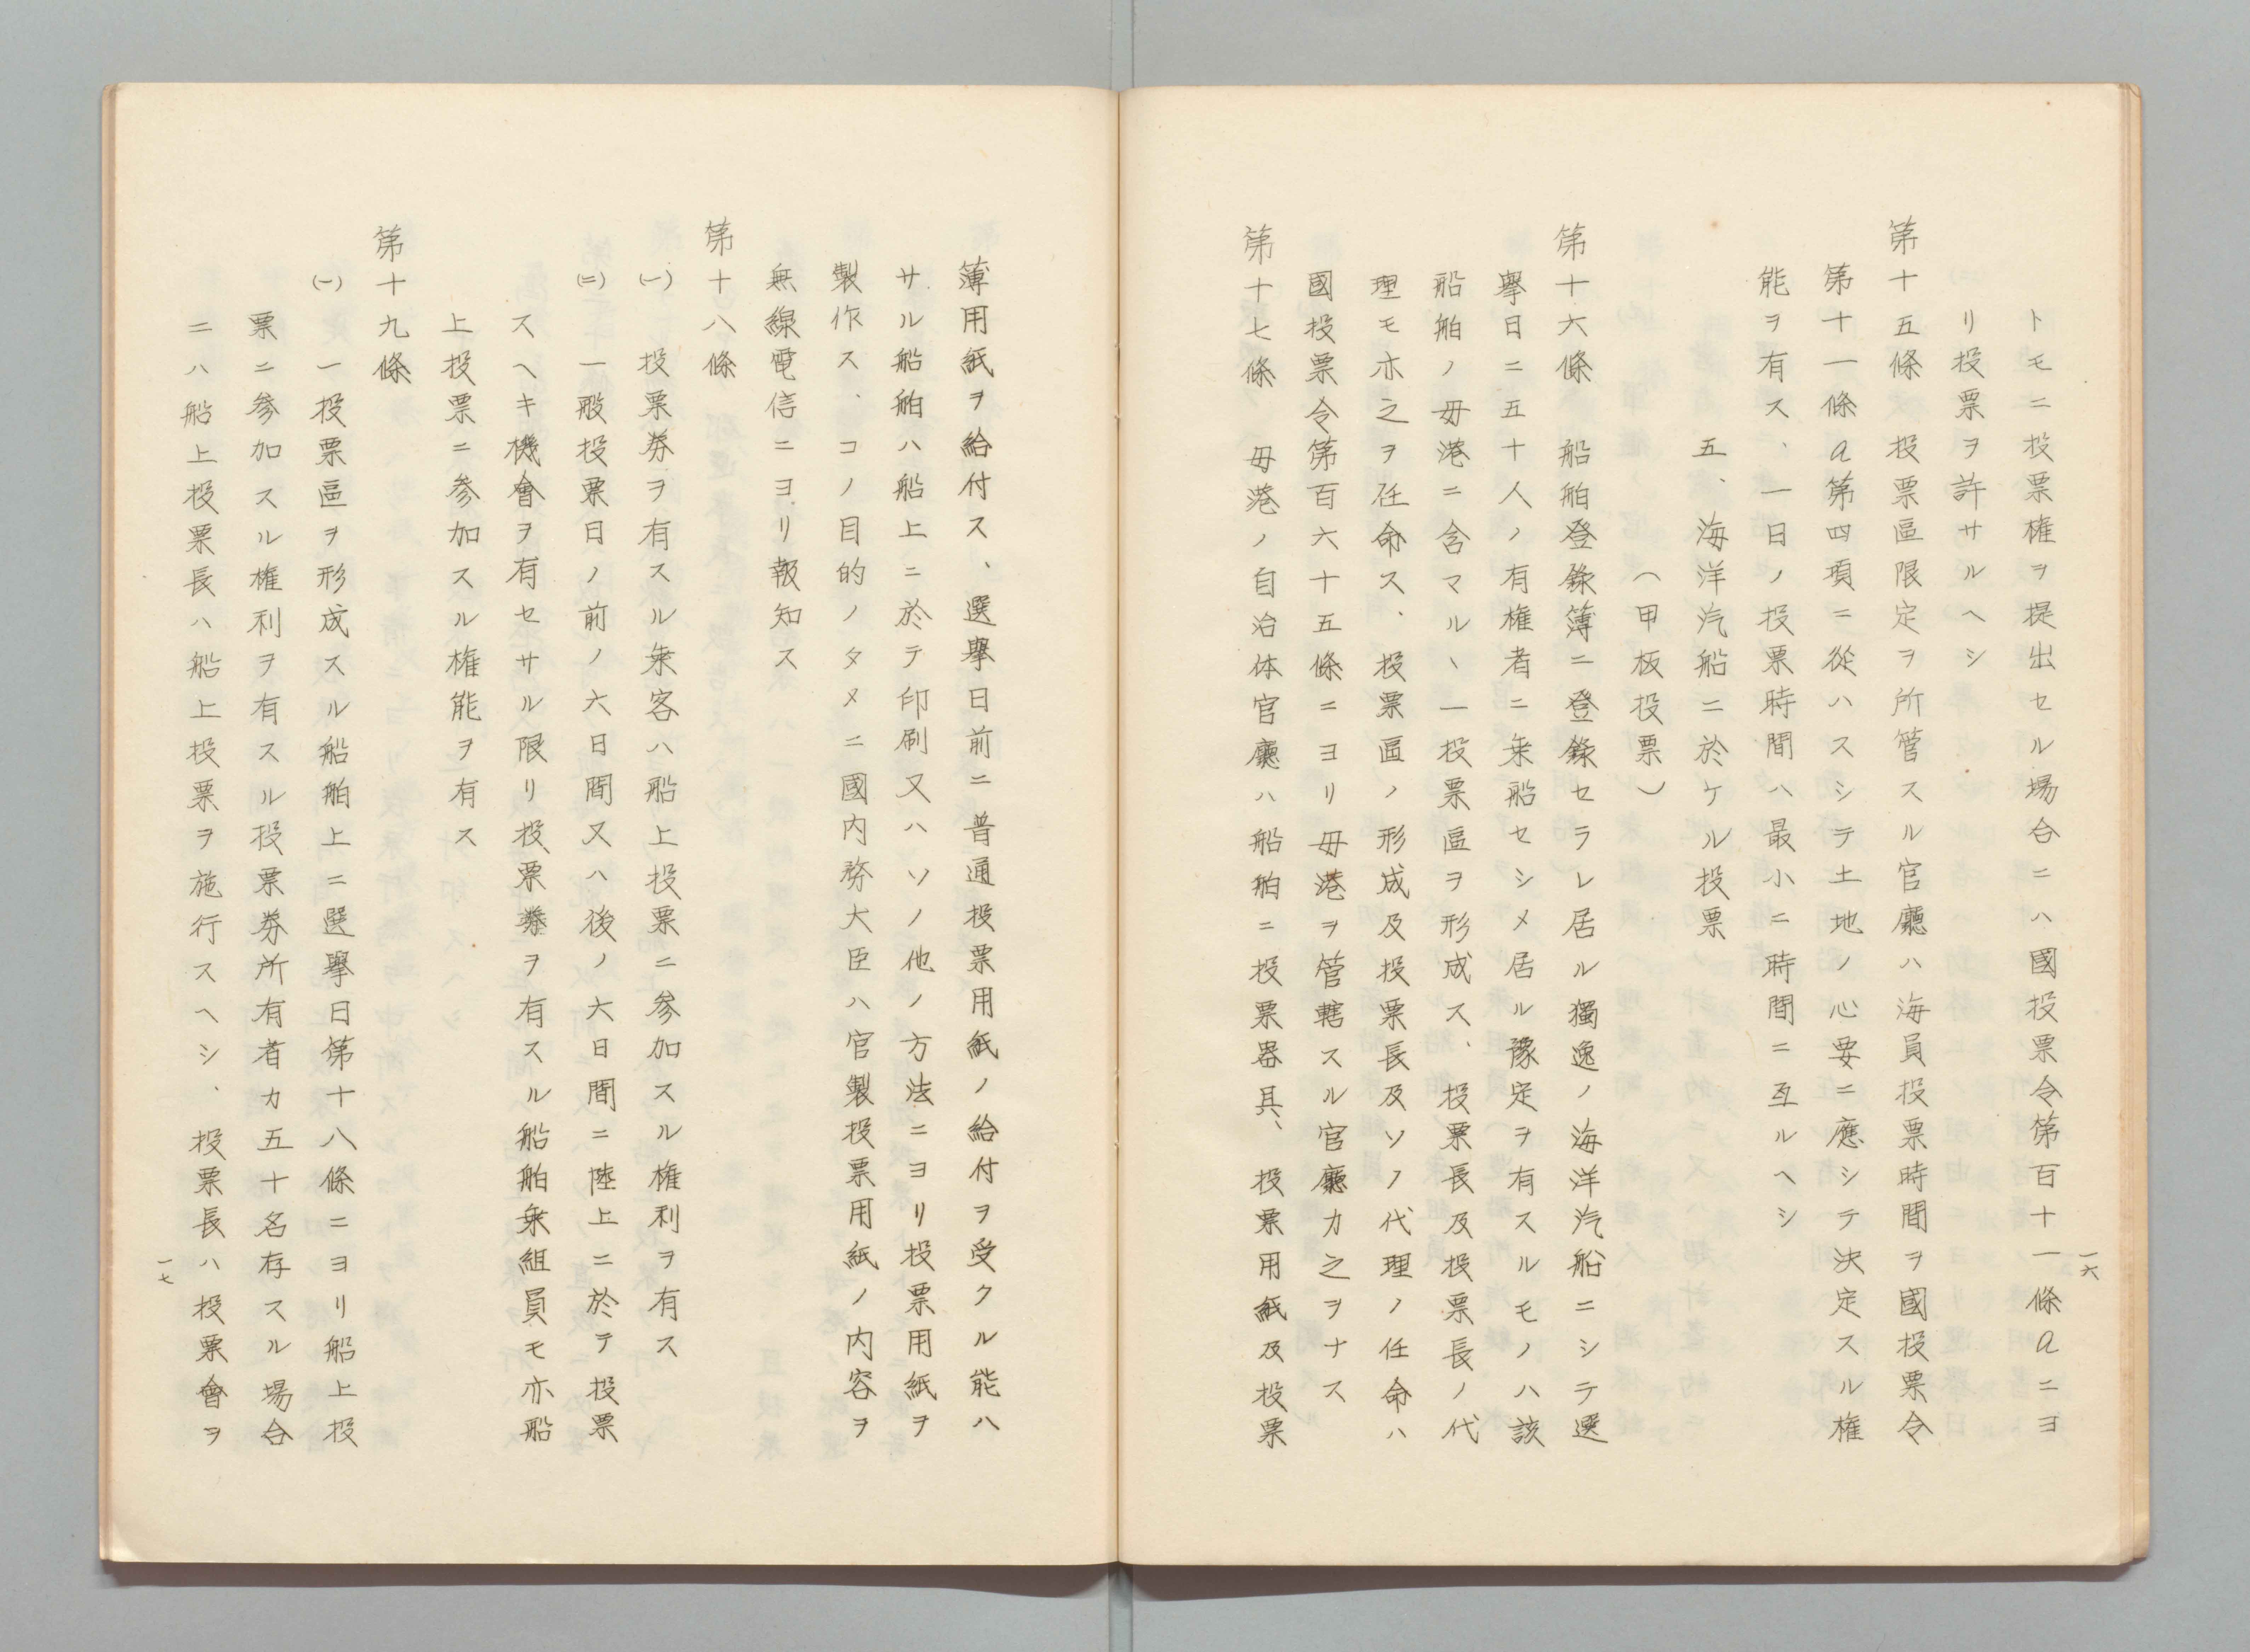 一六
トモニ投票権ヲ提出セル場合ニハ國投票令第百十一條aニヨ
リ投票ヲ許サルヘシ
第十五條　投票區限定ヲ所管スル官廳ハ海員投票時間ヲ國投票令
第十一條a第四項ニ從ハスシテ土地ノ心要ニ應シテ決定スル権
能ヲ有ス、一日ノ投票時間ハ最小ニ時間ニ亙ルヘシ
五、海洋汽船ニ於ケル投票
（甲板投票）
第十六條　船舶登錄簿ニ登錄セラレ居ル獨逸ノ海洋汽船ニシテ選
擧日ニ五十人ノ有権者ニ乗船セシメ居ル豫定ヲ有スルモノハ該
船舶ノ毋港ニ含マル、一投票區ヲ形成ス、投票長及投票長ノ代
理モ亦之ヲ任命ス、投票區ノ形成及投票長及ソノ代理ノ任命ハ
國投票令第百六十五條ニヨリ毋港ヲ管轄スル官廳カ之ヲナス
第十七條　毋港ノ自治体官廳ハ船舶ニ投票器具、投票用紙及投票
簿用紙ヲ給付ス、選擧日前ニ普通投票用紙ノ給付ヲ受クル能ハ
サル船舶ハ船上ニ於テ印刷又ハソノ他ノ方法ニヨリ投票用紙ヲ
製作ス、コノ目的ノタメニ國内務大臣ハ官製投票用紙ノ内容ヲ
無線電信ニヨリ報知ス
第十八條
㈠　投票券ヲ有スル乗客ハ船上投票ニ参加スル権利ヲ有ス
㈡　一般投票日ノ前ノ六日間又ハ後ノ六日間ニ陸上ニ於テ投票
スヘキ機會ヲ有セサル限リ投票券ヲ有スル船舶乗組員モ亦船
上投票ニ参加スル権能ヲ有ス
第十九條
㈠　一投票區ヲ形成スル船舶上ニ選擧日第十八條ニヨリ船上投
票ニ參加スル権利ヲ有スル投票券所有者カ五十名存スル場合
ニハ船上投票長ハ船上投票ヲ施行スヘシ、投票長ハ投票會ヲ
一七